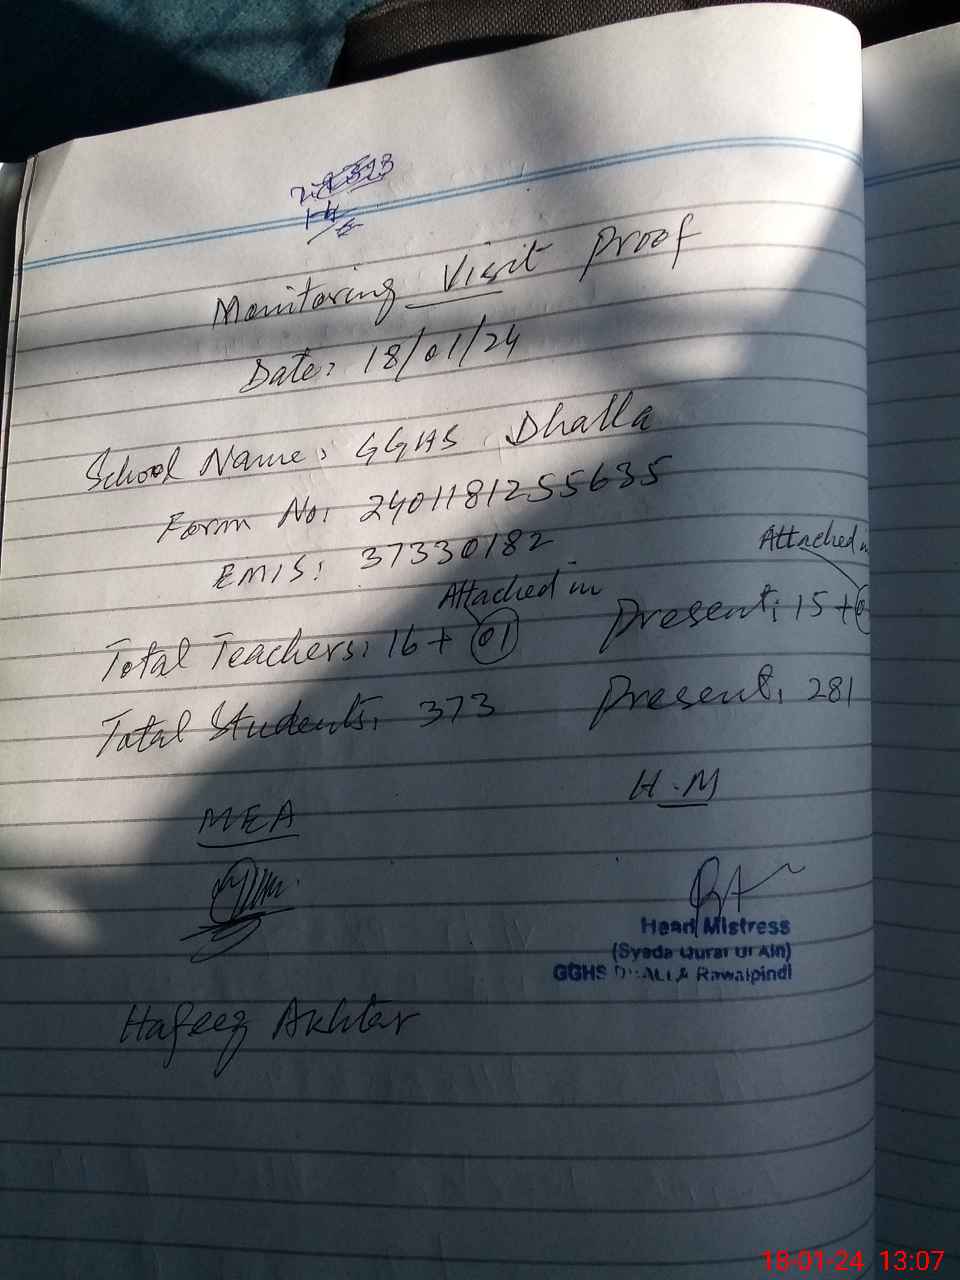 Monitoring Visit Proof
Date: 18/01/24
School Name: GGHS Dhalla
Form No: 2401181255635
EMIS: 37330182
Attached in
Attached in
Total Teachers: 16 + 01
Present: 15 +
Total Students: 373
Present: 281
MEA
H.M
Head Mistress
(Syeda Qurat Ul Ain)
GGHS DHALLA Rawalpindi
Hafeez Akhtar
18-01-24 13:07